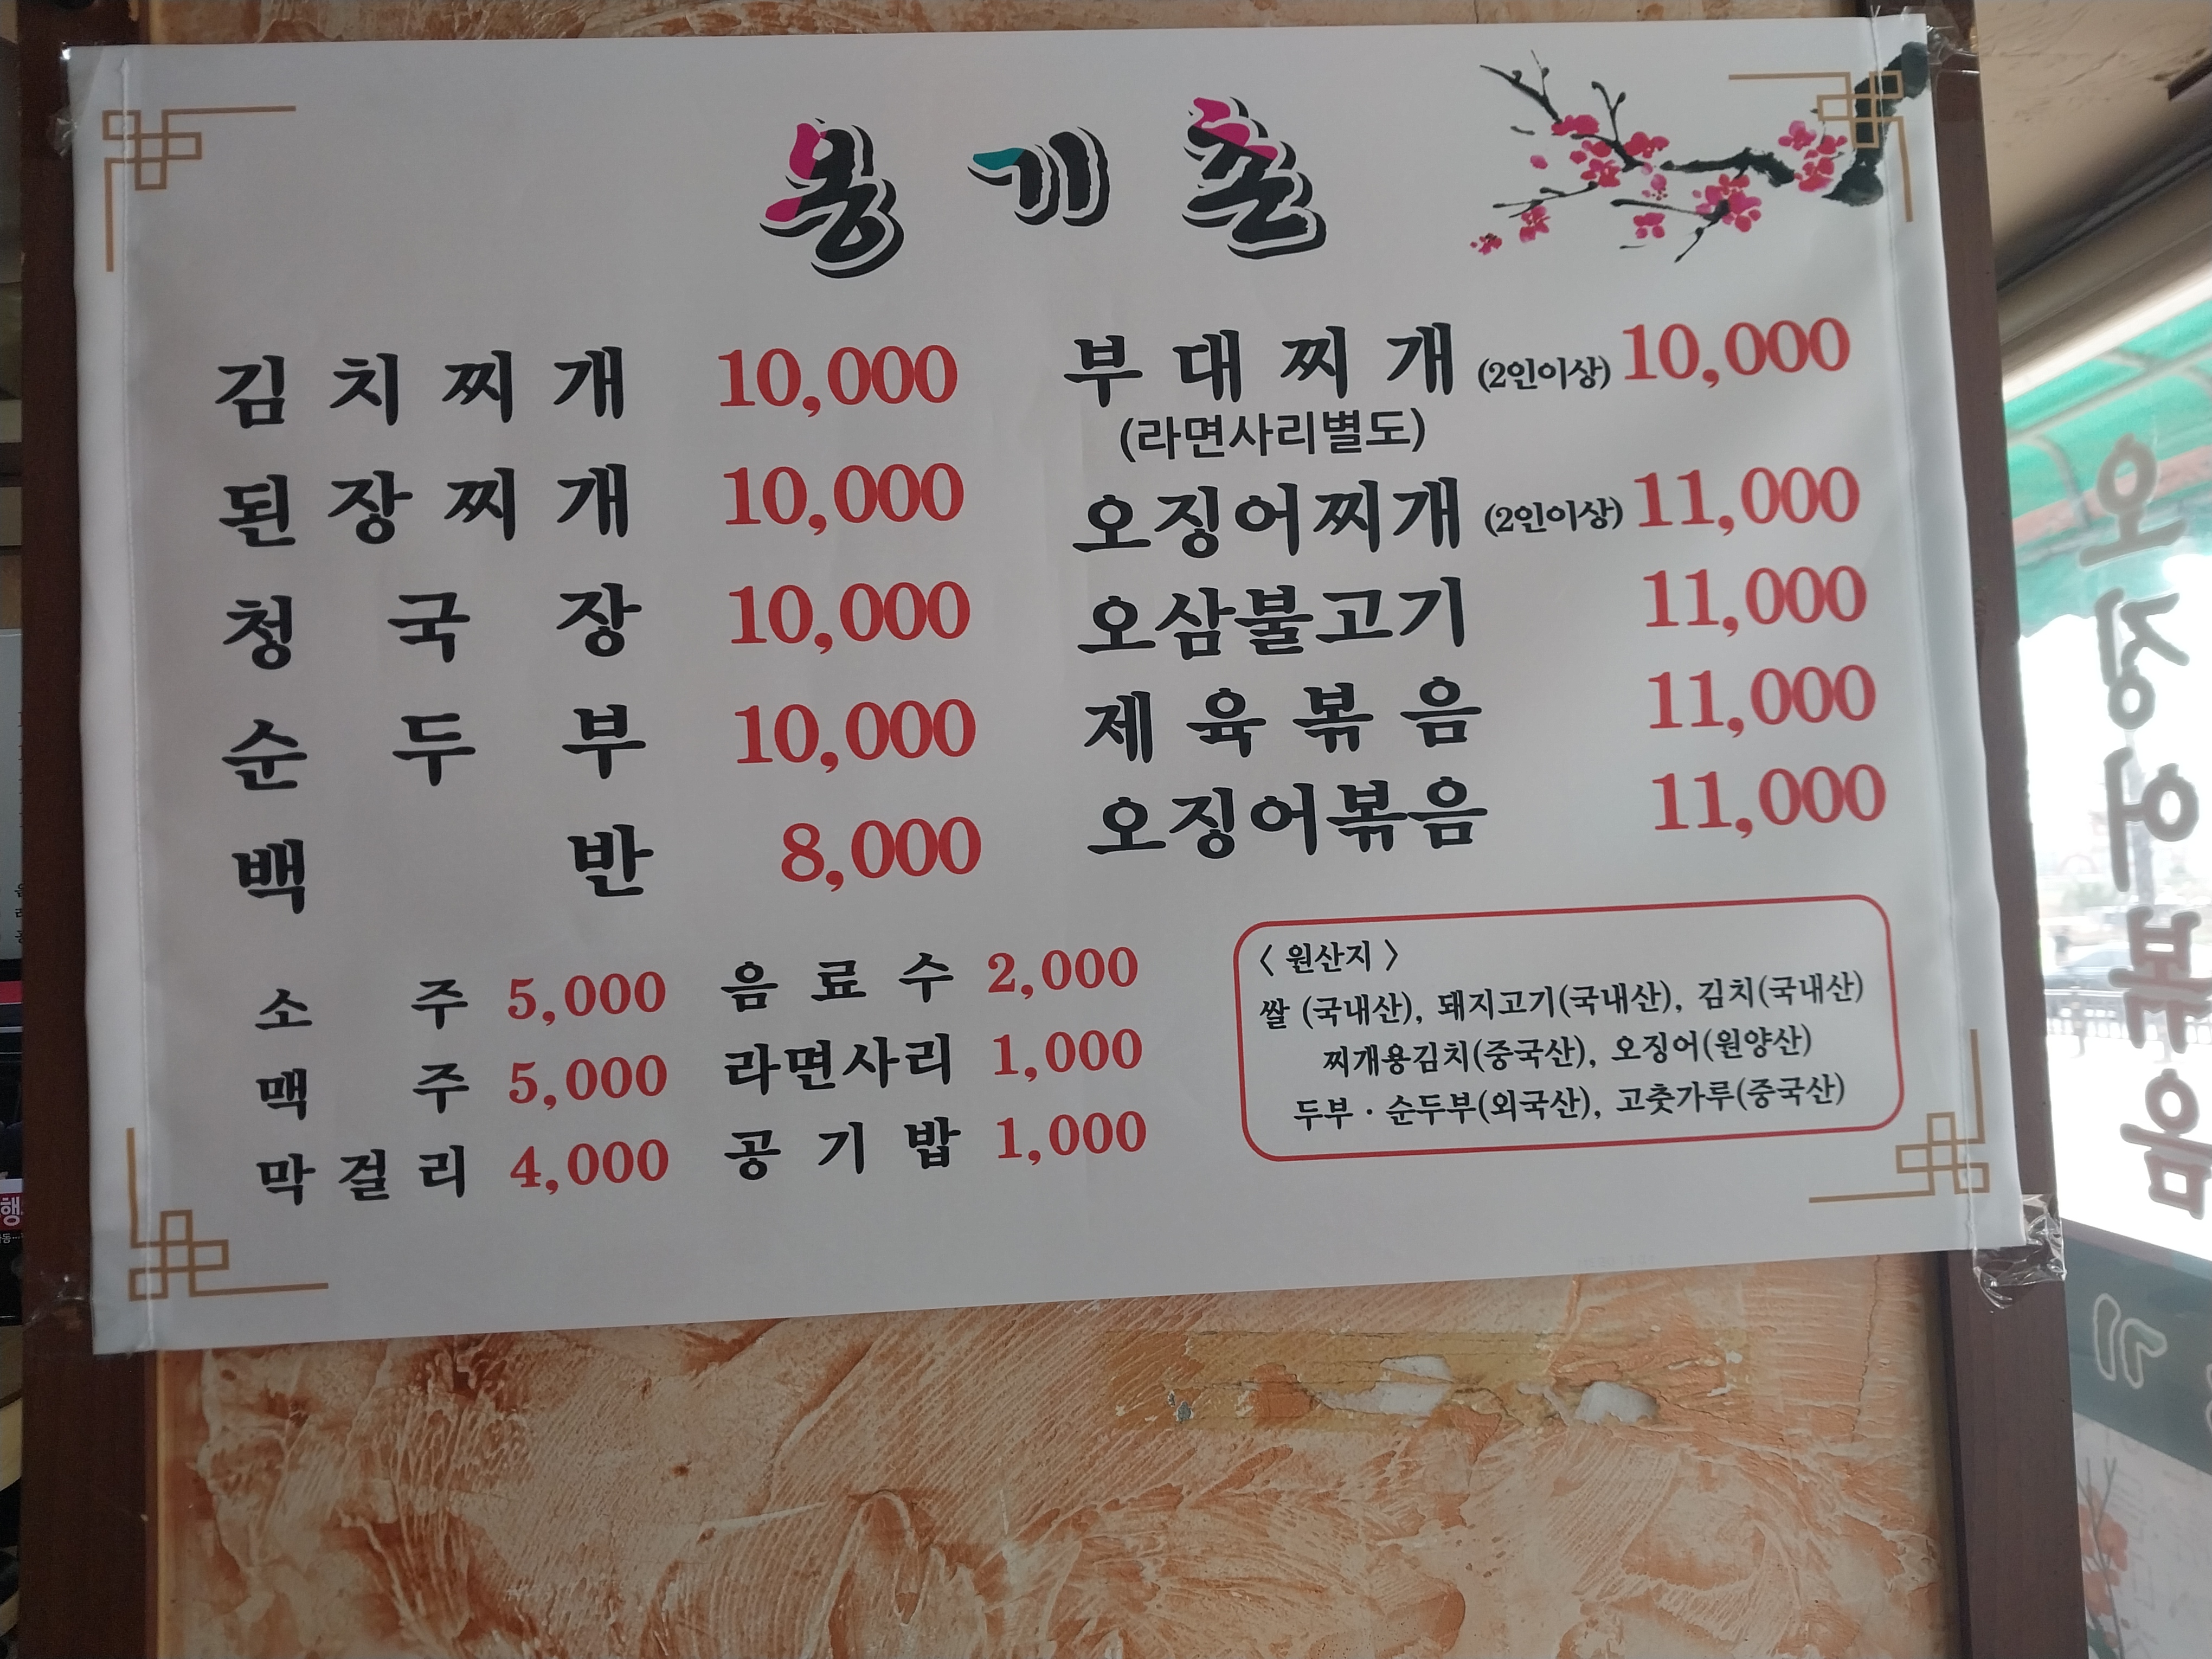 옹기촌
김치찌개 10,000
된장찌개 10,000
청국장 10,000
순두부 10,000
백반 8,000
부대찌개 (2인이상) 10,000
(라면사리별도)
오징어찌개 (2인이상) 11,000
오삼불고기 11,000
제육볶음 11,000
오징어볶음 11,000
소주 5,000
맥주 5,000
막걸리 4,000
음료수 2,000
라면사리 1,000
공기밥 1,000
〈 원산지 〉
쌀 (국내산), 돼지고기(국내산), 김치(국내산)
찌개용김치(중국산), 오징어(원양산)
두부 · 순두부(외국산), 고춧가루(중국산)
오징어볶음